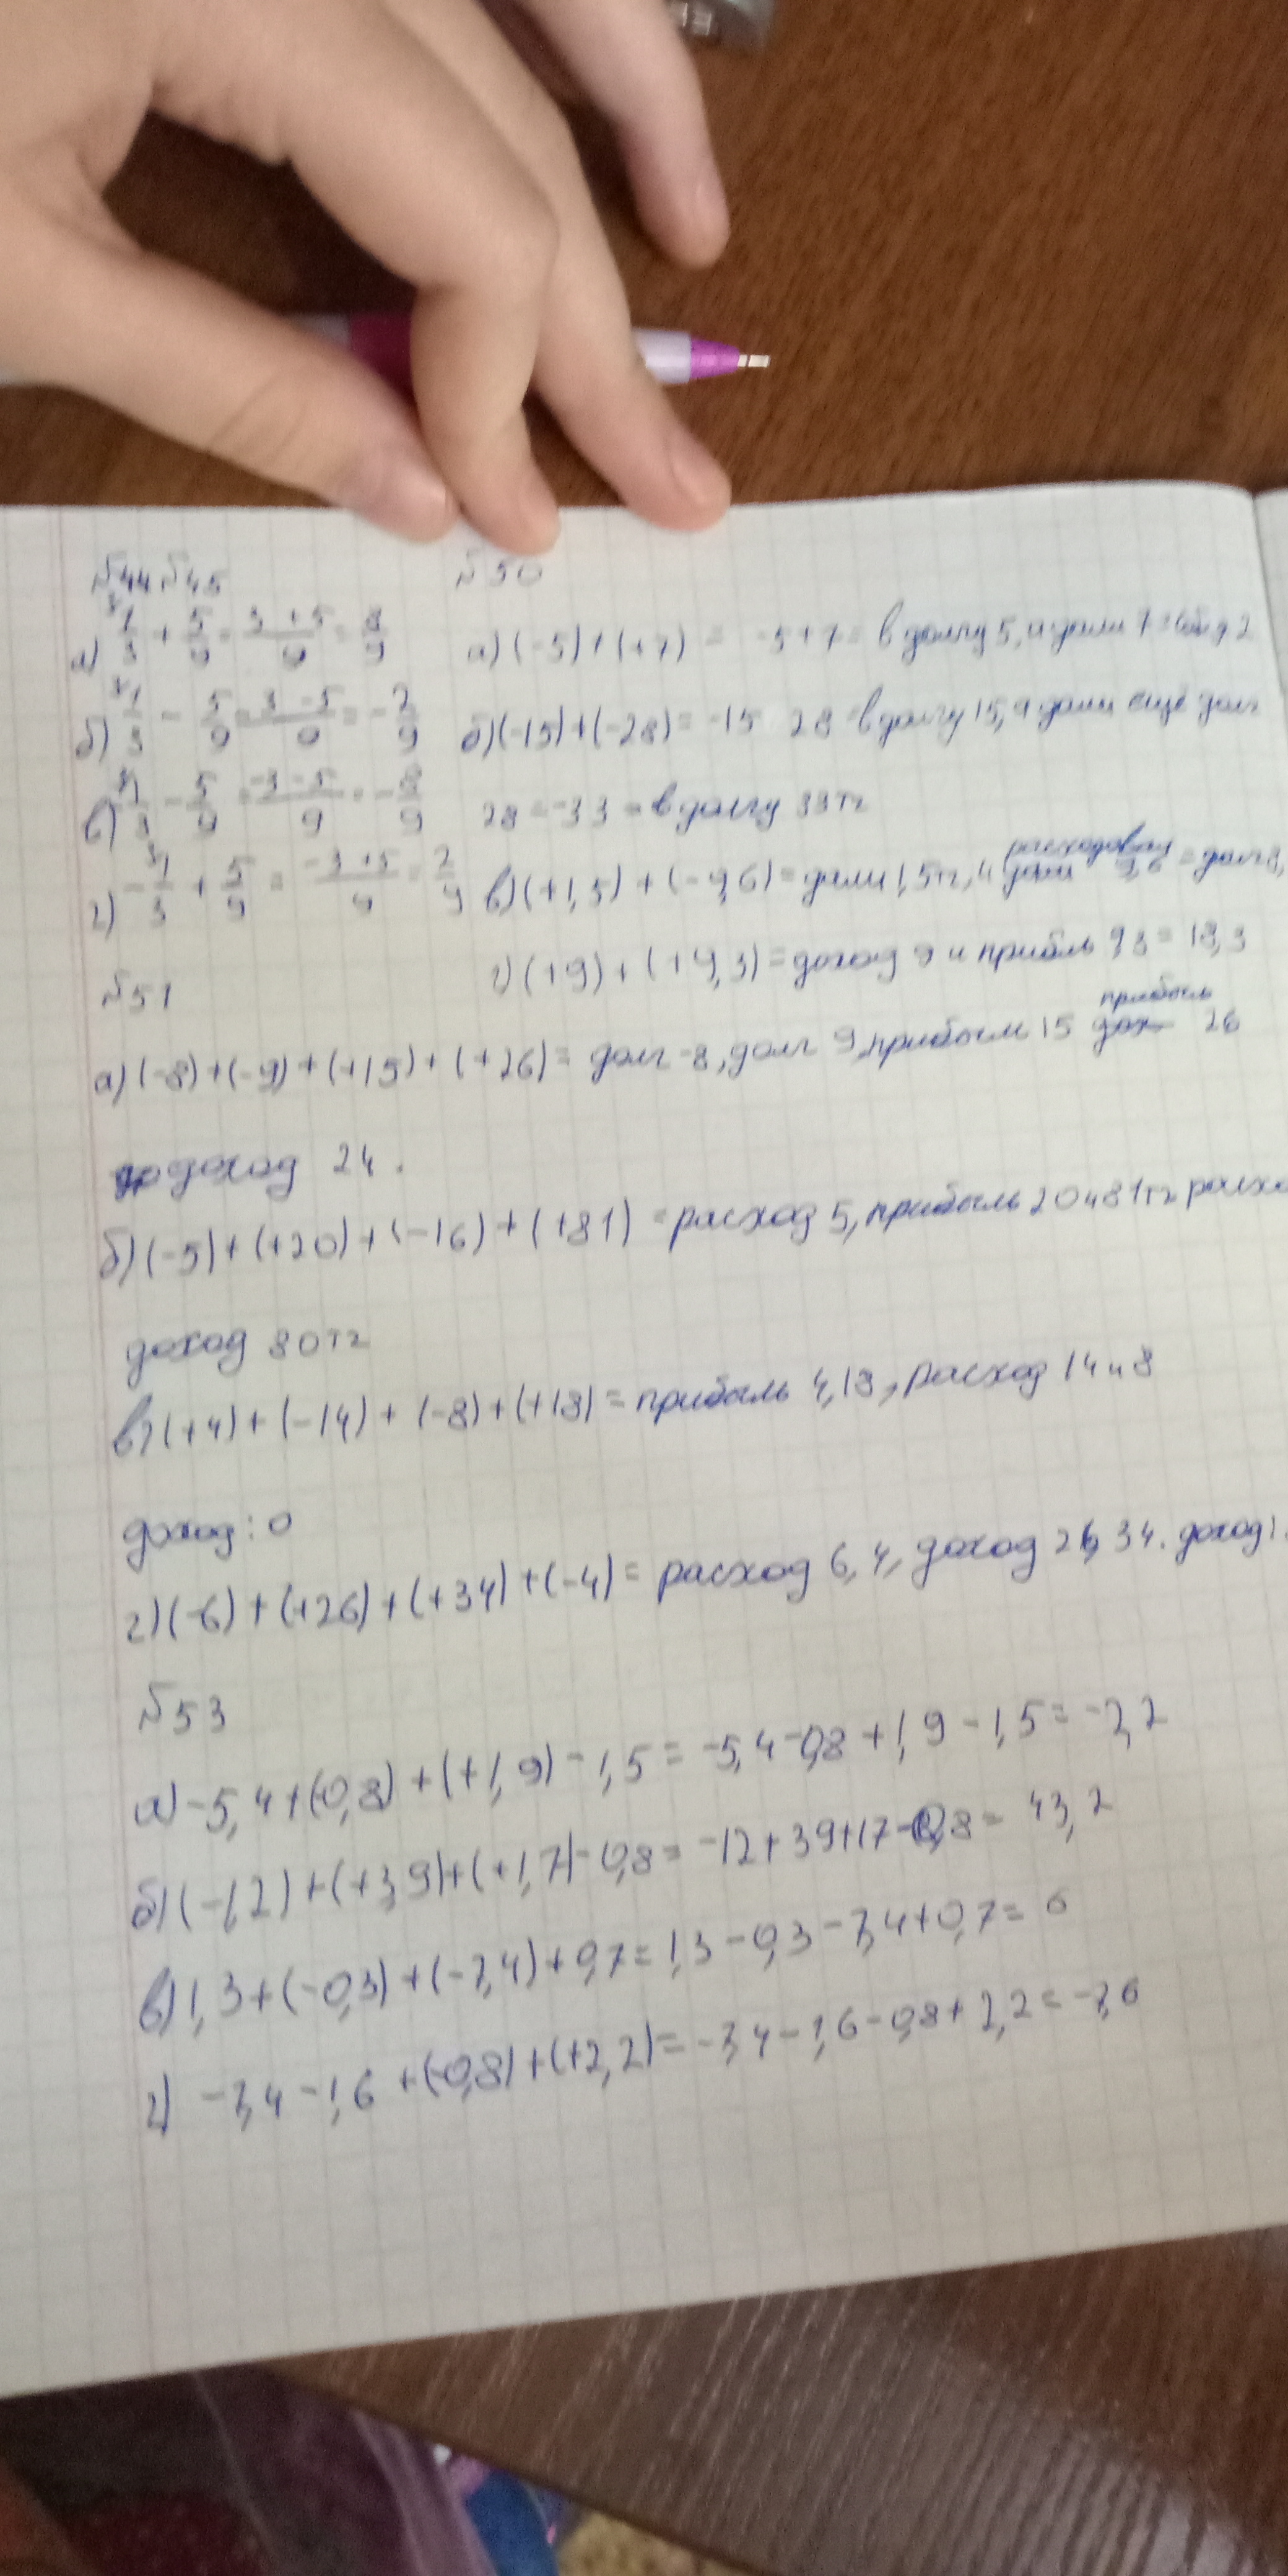 №44 №45
а) 1/3 + 5/9 = 3+5/9 = 8/9
б) 1/3 - 5/9 = 3-5/9 = -2/9
в) 1/3 - 5/9 = -3-5/9 = -8/9
г) -1/3 + 5/9 = -3+5/9 = 2/9
№50
а) (-5)+(+7) = -5+7 = в долгу 5, а дали 7
б) (-15)+(-28) = -15 28 = в долгу 15, дали ещё долг
28 = -33 = в долгу 33тг
расходовал
в) (+1,5)+(-9,6) = дали 1,5тг, и дали 9,6 = долг 8,
г) (+9)+(+9,3) = доход 9 и прибль 9,3 = 18,3
№51
прибыль
а) (-8)+(-9)+(+15)+(+26) = долг -8, долг 9, прибыль 15 дох 26
доход 24.
б) (-5)+(+20)+(-16)+(+81) = расход 5, прибыль 20 и 81тг расхо
доход 80тг
в) (+4)+(-14)+(-8)+(+18) = прибыль 4,18, расход 14 и 8
доход: 0
г) (-6)+(+26)+(+34)+(-4) = расход 6,4, доход 26, 34. доход:
№53
а) -5,4+(-0,8)+(+1,9)-1,5 = -5,4-0,8+1,9-1,5 = -2,2
б) (-1,2)+(+3,9)+(+1,7)-0,8 = -12+39+17-0,8 = 43,2
в) 1,3+(-0,3)+(-7,4)+0,7 = 1,3-0,3-7,4+0,7 = 6
г) -7,4-1,6+(-0,8)+(+2,2) = -7,4-1,6-0,8+2,2 = -7,6